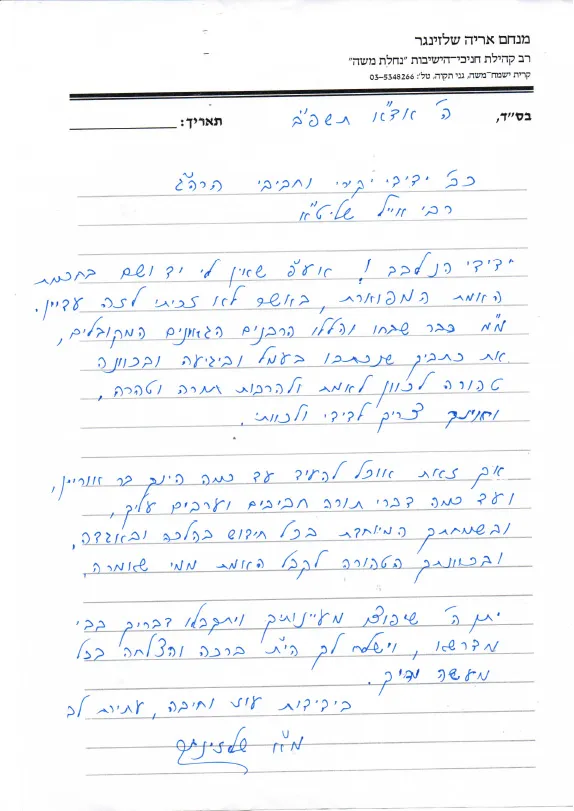 מנחם אריה שלזינגר
רב קהילת חניכי-הישיבות "נחלת משה"
קרית ישמח-משה, גני תקוה, טל': 03-5348266
בס"ד, ה' אד"א תשפ"ב תאריך:
כב' ידידי יקירי וחביבי הרה"ג
רבי אייל שליט"א
ידידי הנלבב! אע"פ שאין לי יד ושם בחכמת
האמת המפוארת, באשר לא זכיתי לזה עדיין.
מ"מ כבר שבחו והללו הרבנים הגאונים המקובלים,
את כתביך שנכתבו בעמל וביגיעה ובכוונה
טהורה לכוון לאמת ולהרבות תורה וטהרה,
ואינך צריך לדידי ולכוותי.
אך זאת אוכל להעיד עד כמה הינך בר אוריין,
ועד כמה דברי תורה חביבים וערבים עליך,
ובשמחתך המיוחדת בכל חידוש בהלכה ובאגדה,
ובכוונתך הטהורה לקבל האמת ממי שאומרה.
יתן ה' שיפוצו מעיינותיך ויתקבלו דבריך בבי
מדרשא, וישלח לך הי"ת ברכה והצלחה בכל
מעשה ידיך.
בידידות עוז וחיבה, עתירת לב
מ"א שלזינגר